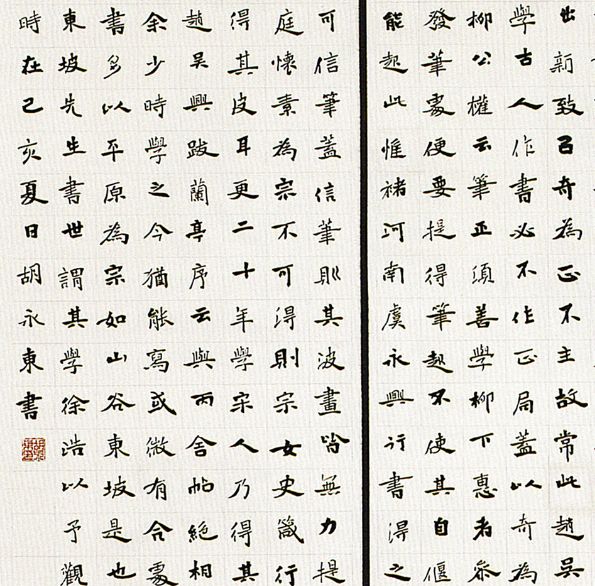 出新致㠯奇為正不主故常此趙吳
學古人作書必不作正局蓋以奇為
柳公權云筆正須善學柳下惠者參
發筆處便要提得筆起不使其自偃
能起此惟褚河南虞永興行書得之
可信筆蓋信筆則其波畫皆無力提
庭懷素為宗不可得則宗女史箴行
得其皮耳更二十年學宋人乃得其
趙吳興跋蘭亭序云與丙舍帖絕相
余少時學之今猶能寫或微有合處
書多以平原為宗如山谷東坡是也
東坡先生書世謂其學徐浩以予觀
時在己亥夏日胡永東書